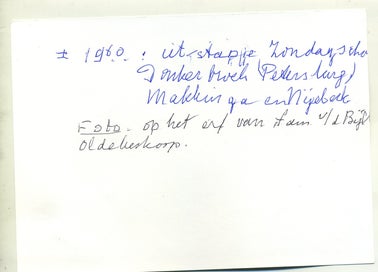 ± 1960 : uitstapje Zondagscho
Donkerbroek (Petersburg)
Makkinga en Nijebe
Foto. op het erf van fam v/d Bijl
Oldeberkoop.